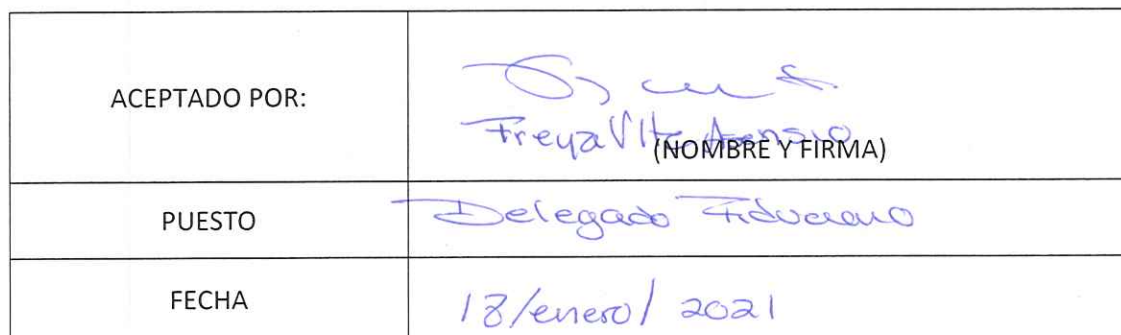 ACEPTADO POR:
Freya Vite Asensio
(NOMBRE Y FIRMA)
PUESTO
Delegado Fiduciario
FECHA
18/enero/ 2021